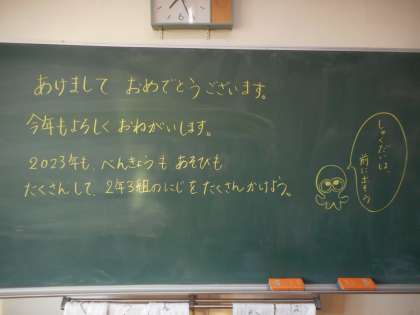 あけまして おめでとうございます。
今年もよろしく おねがいします。
2023年も、べんきょうも あそびも
たくさんして、2年3組のにじを たくさんかけよう。
しゅくだいは、
前に出そう